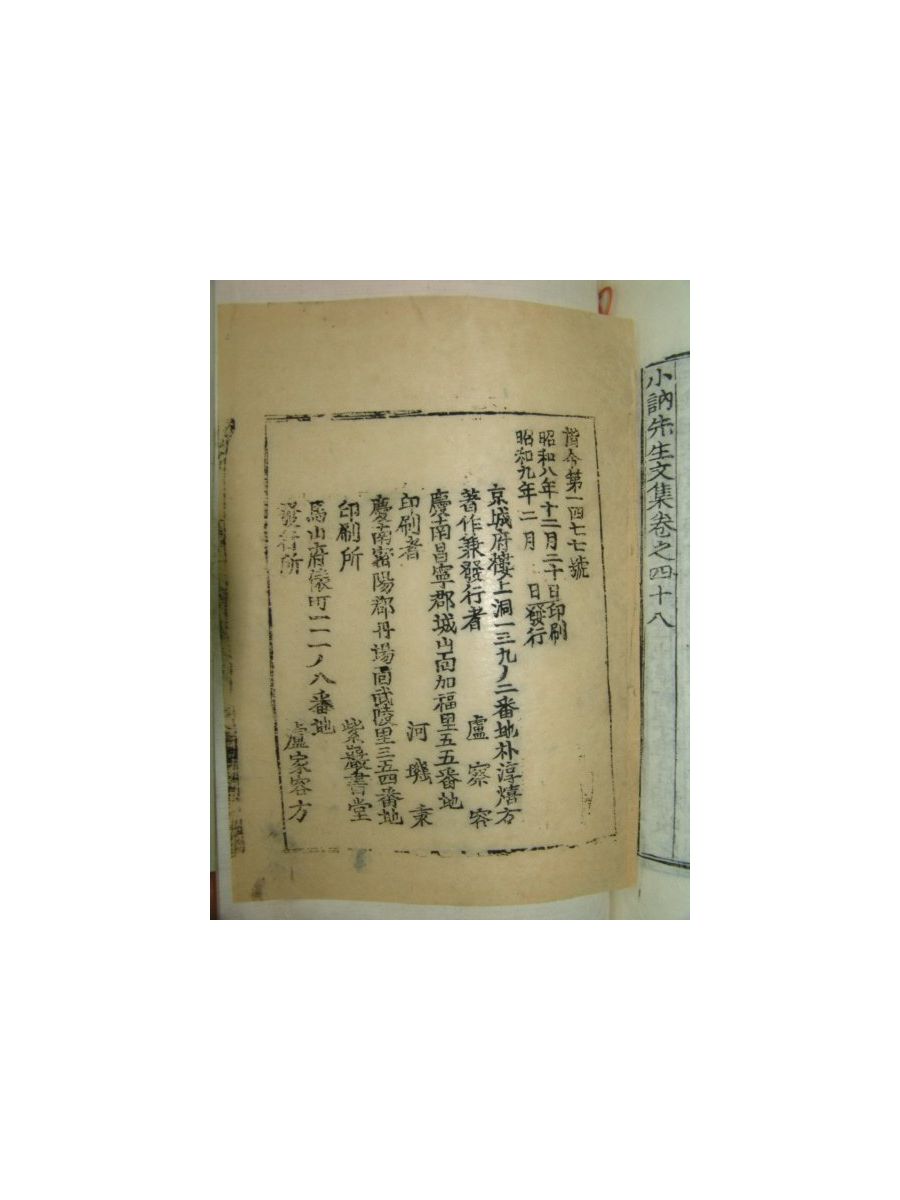 小訥先生文集卷之四十八
第一四七七號
昭和八年十二月二十日印刷
昭和九年二月 日發行
京城府樓上洞一三九ノ二番地朴淳熺方
著作兼發行者 盧家容
慶南昌寧郡城山面加福里五五番地
印刷者 河 秉
慶南密陽郡丹場面武陵里三五四番地
印刷所 紫巖書堂
馬山府 町一一一ノ八番地
發行所 盧家容方